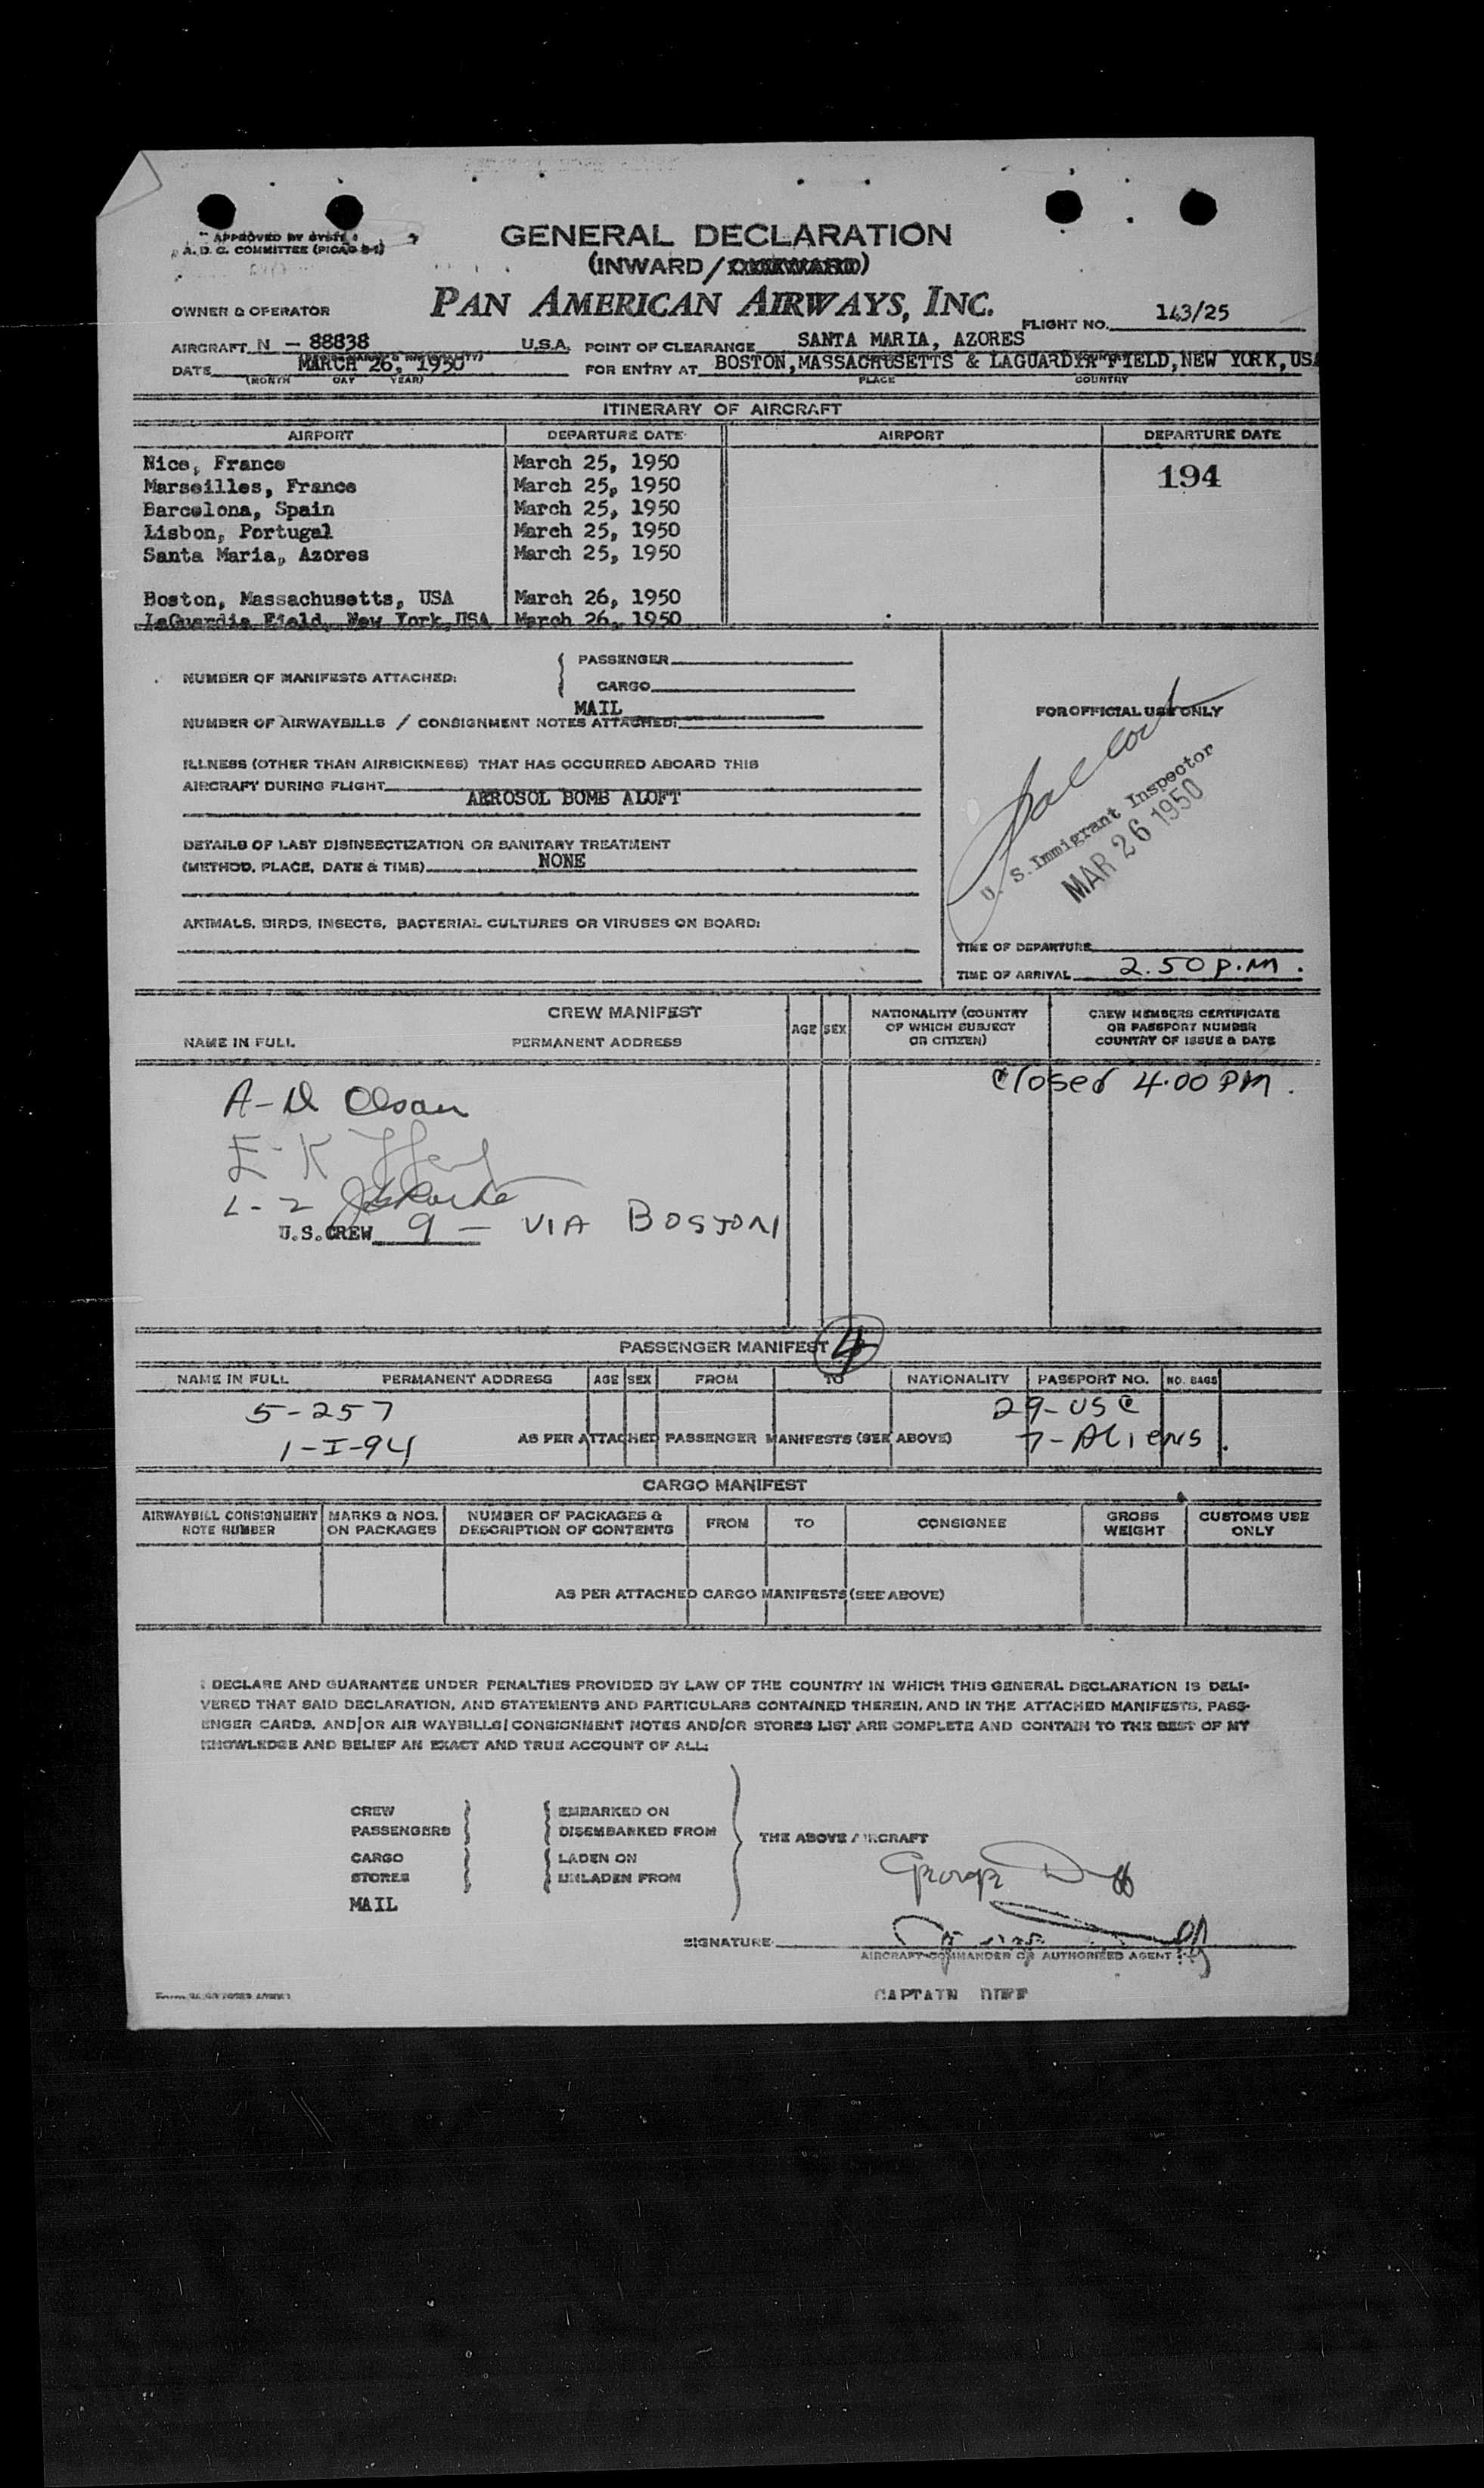 APPROVED BY
A. D. C. COMMITTEE (PICAO
GENERAL DECLARATION
(INWARD/
OWNER & OPERATOR
PAN AMERICAN AIRWAYS, INC.
FLIGHT NO. 143/25
AIRCRAFT N - 88838 U.S.A. POINT OF CLEARANCE SANTA MARIA, AZORES
DATE MARCH 26, 1950 FOR ENTRY AT BOSTON, MASSACHUSETTS & LAGUARDIA FIELD, NEW YORK, USA
(MONTH DAY YEAR) PLACE COUNTRY
ITINERARY OF AIRCRAFT
AIRPORT DEPARTURE DATE AIRPORT DEPARTURE DATE
Nice, France March 25, 1950
194
Marseilles, France March 25, 1950
Barcelona, Spain March 25, 1950
Lisbon, Portugal March 25, 1950
Santa Maria, Azores March 25, 1950
Boston, Massachusetts, USA March 26, 1950
LaGuardia Field, New York, USA March 26, 1950
NUMBER OF MANIFESTS ATTACHED: PASSENGER
CARGO
MAIL
NUMBER OF AIRWAYBILLS / CONSIGNMENT NOTES ATTACHED:
FOR OFFICIAL USE ONLY
ILLNESS (OTHER THAN AIRSICKNESS) THAT HAS OCCURRED ABOARD THIS
AIRCRAFT DURING FLIGHT
AEROSOL BOMB ALOFT
U. S. Immigrant Inspector
MAR 26 1950
DETAILS OF LAST DISINSECTIZATION OR SANITARY TREATMENT
(METHOD, PLACE, DATE & TIME) NONE
ANIMALS, BIRDS, INSECTS, BACTERIAL CULTURES OR VIRUSES ON BOARD:
TIME OF DEPARTURE
TIME OF ARRIVAL 2.50 P.M.
CREW MANIFEST
NAME IN FULL PERMANENT ADDRESS AGE SEX
NATIONALITY (COUNTRY
OF WHICH SUBJECT
OR CITIZEN)
CREW MEMBERS CERTIFICATE
OR PASSPORT NUMBER
COUNTRY OF ISSUE & DATE
Closed 4.00 PM.
A-D Olsan
E-K
L-Z
U.S. CREW 9 - VIA BOSTON
PASSENGER MANIFEST 4
NAME IN FULL PERMANENT ADDRESS AGE SEX FROM TO NATIONALITY PASSPORT NO. NO. BAGS
5-257 29-USC
1-I-94 AS PER ATTACHED PASSENGER MANIFESTS (SEE ABOVE) 7-Aliens.
CARGO MANIFEST
AIRWAYBILL CONSIGNMENT
NOTE NUMBER
MARKS & NOS.
ON PACKAGES
NUMBER OF PACKAGES &
DESCRIPTION OF CONTENTS
FROM TO CONSIGNEE
GROSS
WEIGHT
CUSTOMS USE
ONLY
AS PER ATTACHED CARGO MANIFESTS (SEE ABOVE)
I DECLARE AND GUARANTEE UNDER PENALTIES PROVIDED BY LAW OF THE COUNTRY IN WHICH THIS GENERAL DECLARATION IS DELI-
VERED THAT SAID DECLARATION, AND STATEMENTS AND PARTICULARS CONTAINED THEREIN, AND IN THE ATTACHED MANIFESTS, PASS-
ENGER CARDS, AND/OR AIR WAYBILLS/CONSIGNMENT NOTES AND/OR STORES LIST ARE COMPLETE AND CONTAIN TO THE BEST OF MY
KNOWLEDGE AND BELIEF AN EXACT AND TRUE ACCOUNT OF ALL:
CREW EMBARKED ON
PASSENGERS DISEMBARKED FROM
THE ABOVE AIRCRAFT
CARGO LADEN ON
STORES UNLADEN FROM
MAIL
George Duff
SIGNATURE
AIRCRAFT COMMANDER OR AUTHORIZED AGENT
CAPTAIN DUFF